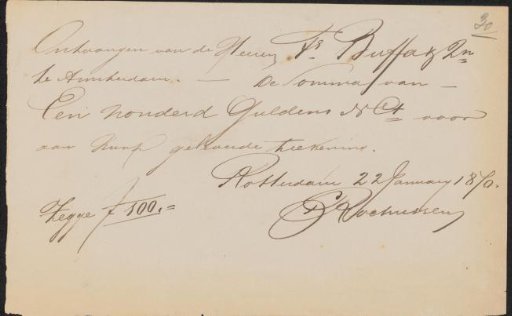 30
Ontvangen van de Heeren Fs. Buffa & Zn
te Amsterdam. — De Somma van —
Een honderd Guldens N Ct voor
aan hun verkochte teekening.
Rotterdam 22 January 1870.
Zegge f 100.=
C Rochussen